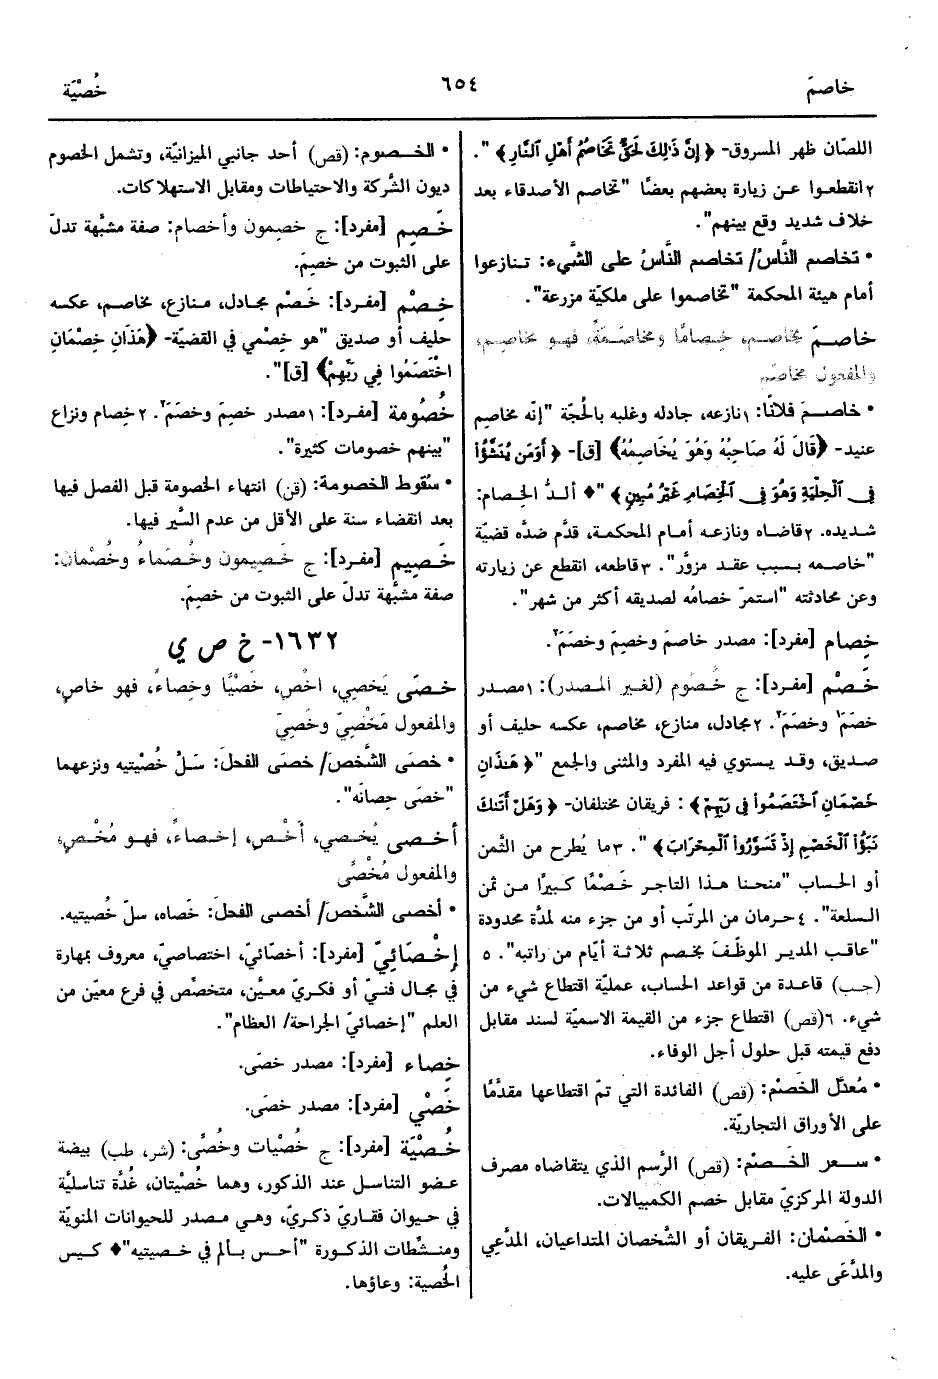 خاصمَ
٦٥٤
خُصْيَة
اللصّان ظهر المسروق- ﴿ إِنَّ ذَلِكَ لَحَقٌّ تَخَاصُمُ أَهْلِ ٱلنَّارِ ﴾ ".
٢ انقطعوا عن زيارة بعضهم بعضًا "تخاصم الأصدقاء بعد
خلاف شديد وقع بينهم".
• تخاصم النَّاسُ/ تخاصم النَّاسُ على الشَّيء: تنازعوا
أمام هيئة المحكمة "تخاصموا على ملكيّة مزرعة".
خاصمَ يخاصِم، خِصامًا ومخاصَمةً، فهو مخاصِم،
والمفعول مخاصَم
• خاصمَ فلانًا: ١ نازعه، جادله وغلبه بالحُجّة "إنّه مخاصِم
عنيد- ﴿قَالَ لَهُ صَاحِبُهُ وَهُوَ يُخَاصِمُهُ﴾ [ق]- ﴿ أَوَمَن يُنَشَّؤُاْ
فِى ٱلْحِلْيَةِ وَهُوَ فِى ٱلْخِصَامِ غَيْرُ مُبِينٍ ﴾ "♦ ألدُّ الخِصام:
شديده. ٢ قاضاه ونازعه أمام المحكمة، قدَّم ضدَّه قضيّة
"خاصمه بسبب عقد مزوَّر". ٣ قاطعه، انقطع عن زيارته
وعن محادثته "استمرّ خصامُه لصديقه أكثر من شهر".
خِصام [مفرد]: مصدر خاصمَ وخصِمَ وخصَمَ٢.
خَصْم [مفرد]: ج خُصوم (لغير المصدر): ١ مصدر
خصَمَ١ وخصَمَ٢. ٢ مجادل، منازع، مخاصم، عكسه حليف أو
صديق، وقد يستوي فيه المفرد والمثنى والجمع "﴿ هَٰذَانِ
خَصْمَانِ ٱخْتَصَمُواْ فِى رَبِّهِمْ ﴾ : فريقان مختلفان- ﴿ وَهَلْ أَتَىٰكَ
نَبَؤُاْ ٱلْخَصْمِ إِذْ تَسَوَّرُواْ ٱلْمِحْرَابَ ﴾ ". ٣ ما يُطرح من الثَّمن
أو الحساب "منحنا هذا التاجر خَصْمًا كبيرًا من ثمن
السلعة". ٤ حرمان من المرتّب أو من جزء منه لمدَّة محدودة
"عاقب المدير الموظّفَ بخصم ثلاثة أيّام من راتبه". ٥
(جب) قاعدة من قواعد الحساب، عمليّة اقتطاع شيء من
شيء. ٦ (قص) اقتطاع جزء من القيمة الاسميّة لسند مقابل
دفع قيمته قبل حلول أجل الوفاء.
• مُعدَّل الخَصْم: (قص) الفائدة التي تمّ اقتطاعها مقدَّمًا
على الأوراق التجاريّة.
• سعر الخَصْم: (قص) الرَّسم الذي يتقاضاه مصرف
الدولة المركزيّ مقابل خصم الكمبيالات.
• الخَصْمان: الفريقان أو الشَّخصان المتداعيان، المدَّعِي
والمدَّعَى عليه.
• الخصوم: (قص) أحد جانبي الميزانيّة، وتشمل الخصوم
ديون الشَّركة والاحتياطات ومقابل الاستهلاكات.
خَصِم [مفرد]: ج خصِمون وأخصام: صفة مشبَّهة تدلّ
على الثبوت من خصِمَ.
خِصْم [مفرد]: خَصْم مجادل، منازع، مخاصم، عكسه
حليف أو صديق "هو خِصْمي في القضيّة- ﴿هَذَانِ خِصْمَانِ
اخْتَصَمُوا فِي رَبِّهِمْ﴾ [ق]".
خُصُومة [مفرد]: ١ مصدر خصِمَ وخصَمَ٢. ٢ خِصام ونزاع
"بينهم خصومات كثيرة".
• سُقوط الخصومة: (قن) انتهاء الخصومة قبل الفصل فيها
بعد انقضاء سنة على الأقل من عدم السَّير فيها.
خَصيم [مفرد]: ج خَصيمون وخُصَماءُ وخُصْمان:
صفة مشبَّهة تدلّ على الثبوت من خصِمَ.
١٦٣٢- خ ص ي
خصَى يَخصِي، اخْصِ، خَصْيًا وخِصاءً، فهو خاصٍ،
والمفعول مَخْصِيّ وخَصِيّ
• خصَى الشَّخصَ/ خصَى الفحلَ: سَلّ خُصْيتيه ونزعهما
"خصَى حِصانَه".
أخصى يُخصي، أَخْصِ، إخصاءً، فهو مُخْصٍ،
والمفعول مُخْصًى
• أخصى الشَّخصَ/ أخصى الفحلَ: خَصاه، سلّ خُصيتيه.
إخْصائِيّ [مفرد]: أخصّائيّ، اختصاصيّ، معروف بمهارة
في مجال فنيّ أو فكريّ معيَّن، متخصّص في فرع معيّن من
العلم "إخصائيّ الجراحة/ العظام".
خِصاء [مفرد]: مصدر خصَى.
خَصْي [مفرد]: مصدر خصَى.
خُصْيَة [مفرد]: ج خُصْيات وخُصًى: (شر، طب) بيضة
عضو التناسل عند الذكور، وهما خُصْيتان، غُدَّة تناسليَّة
في حيوان فقاريّ ذكريّ، وهي مصدر للحيوانات المنويّة
ومنشِّطات الذكورة "أحس بألم في خصيتيه"♦ كيس
الخُصية: وعاؤها.